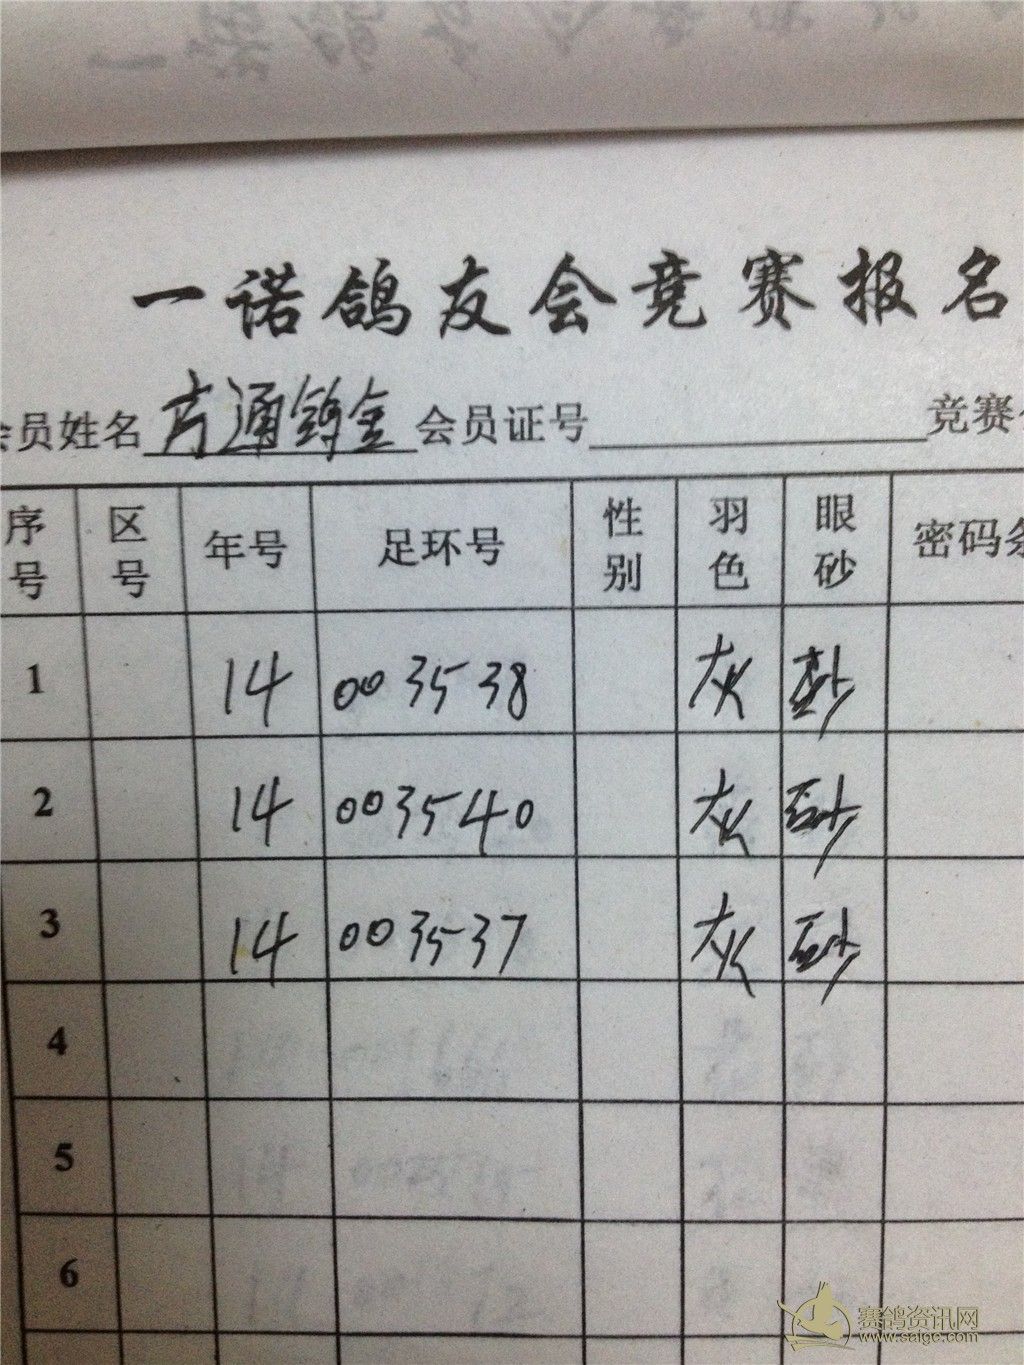 一诺鸽友会竞赛报名
会员姓名 方通鸽舍 会员证号 竞赛
序号 区号 年号 足环号 性别 羽色 眼砂 密码条
1 14 003538 灰
2 14 003540 灰 砂
3 14 003537 灰 砂
4
5
6
赛鸽资讯网
www.saigc.com